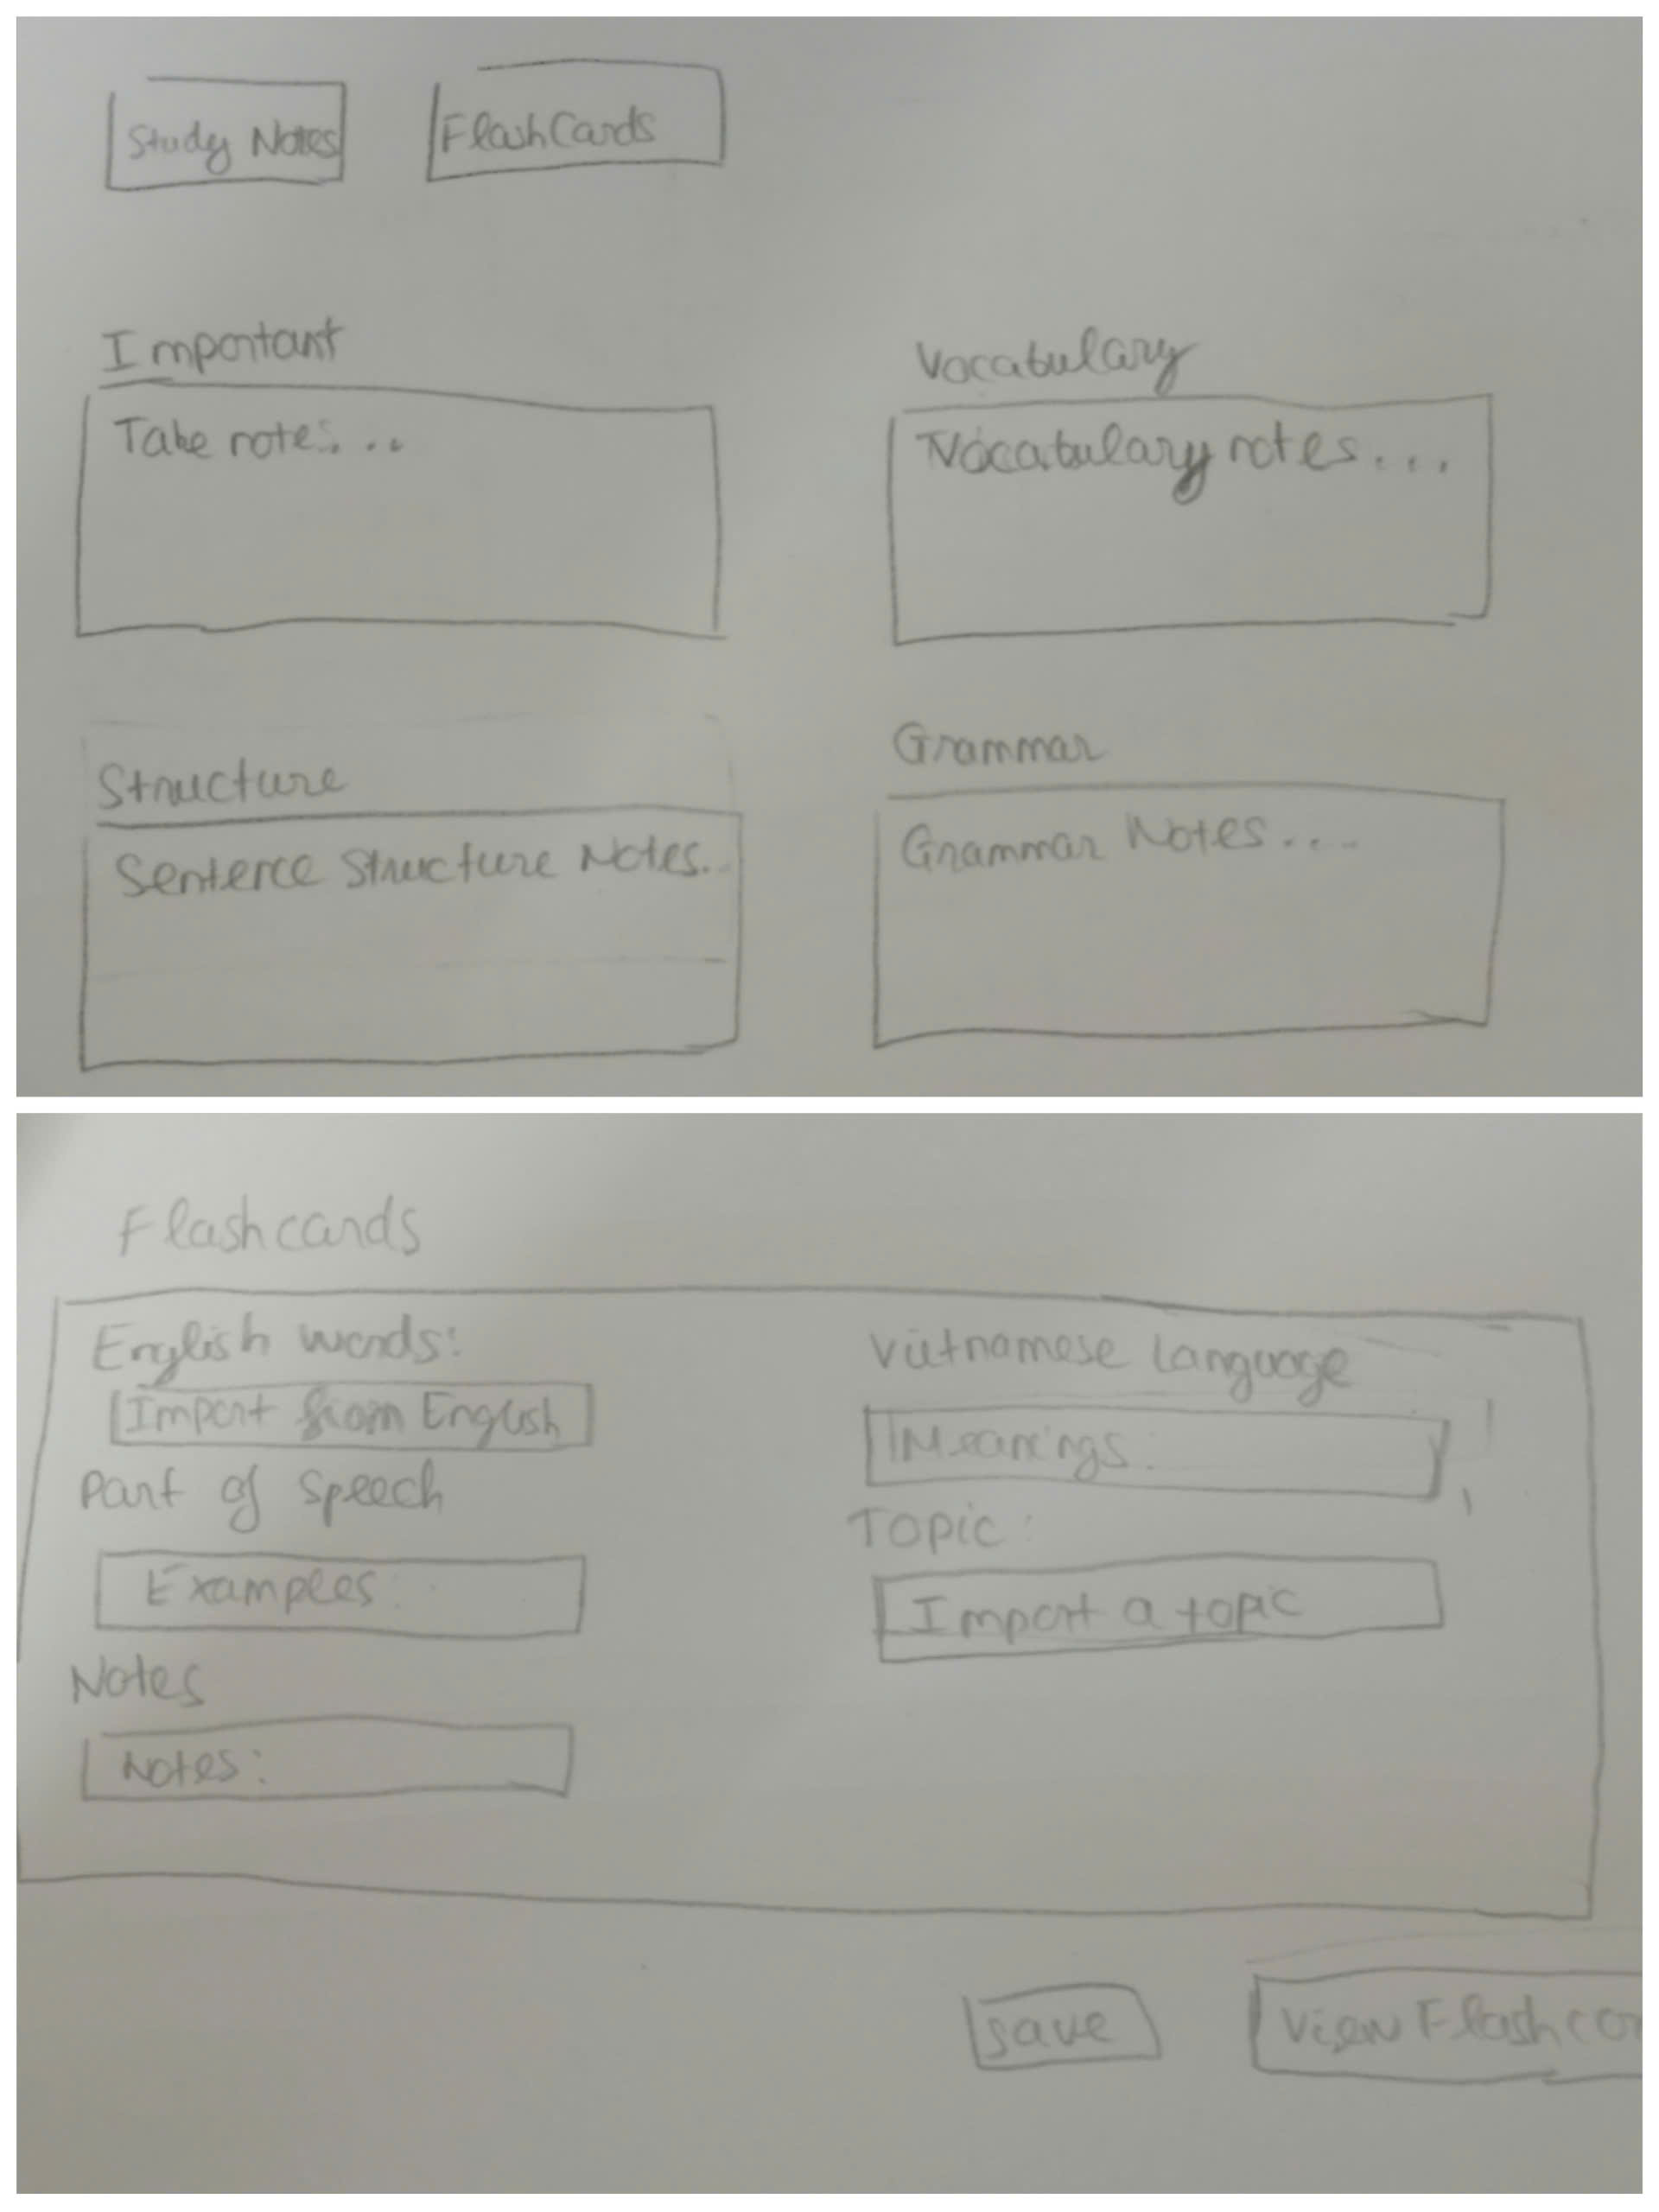 Study Notes
FlashCards
Important
Take notes...
Vocabulary
Vocabulary notes...
Structure
Sentence Structure Notes..
Grammar
Grammar Notes....
Flashcards
English words:
Import from English
Part of speech
Examples:
Notes
Notes:
Vietnamese Language
Meanings:
Topic:
Import a topic
save
View Flashcar